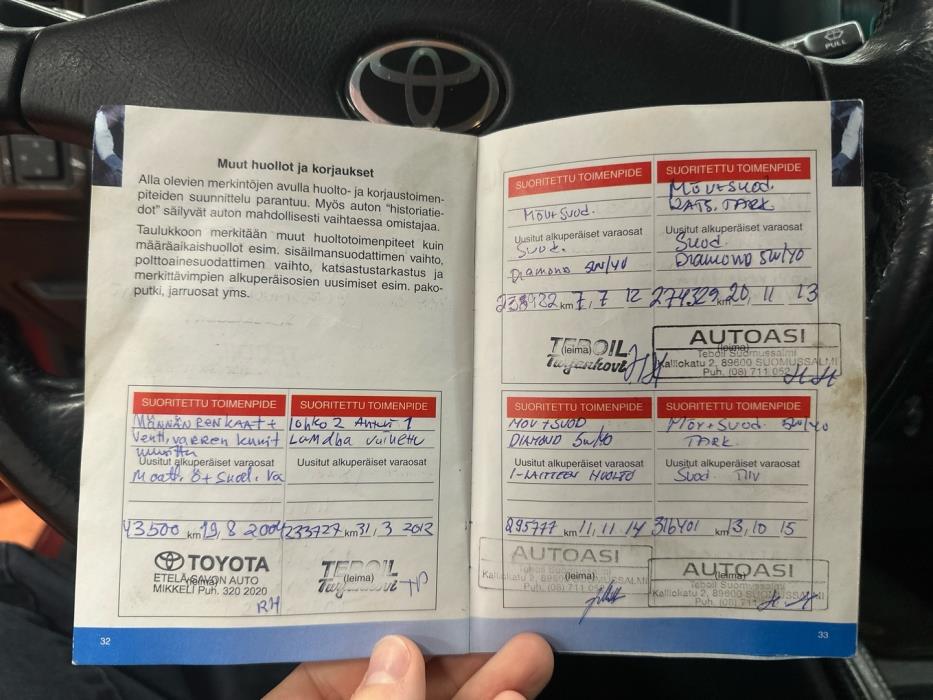 PULL
Muut huollot ja korjaukset
Alla olevien merkintöjen avulla huolto- ja korjaustoimen-
piteiden suunnittelu parantuu. Myös auton "historiatie-
dot" säilyvät auton mahdollisesti vaihtaessa omistajaa.
Taulukkoon merkitään muut huoltotoimenpiteet kuin
määräaikaishuollot esim. sisäilmansuodattimen vaihto,
polttoainesuodattimen vaihto, katsastustarkastus ja
merkittävimpien alkuperäisosien uusimiset esim. pako-
putki, jarruosat yms.
SUORITETTU TOIMENPIDE
MÄNNÄN RENKAAT +
Venti, varren kumit
Uusitut alkuperäiset varaosat
Moott. Ö + Suod.
43500 km 19, 8 2004
TOYOTA
(leima)
ETELÄ-SAVON AUTO
MIKKELI Puh. 320 2020
RH
SUORITETTU TOIMENPIDE
Lohko 2 Anturi 1
Lamdba vaihettu
Uusitut alkuperäiset varaosat
233727 km 31, 3 2012
TEBOIL
(leima)
32
SUORITETTU TOIMENPIDE
Möv+Suod.
Uusitut alkuperäiset varaosat
Suod.
Diamond 5W/40
km 7, 7 12
TEBOIL
(leima)
SUORITETTU TOIMENPIDE
Möv+Suod.
KATS. TARK
Uusitut alkuperäiset varaosat
Suod.
Diamond 5W/40
274329 km 20, 11 13
AUTOASI
(leima)
Teboil Suomussalmi
Kalliokatu 2, 89600 SUOMUSSALMI
Puh. (08) 711 052
SUORITETTU TOIMENPIDE
MÖV+SUOD
DIAMOND 5W/40
Uusitut alkuperäiset varaosat
I-LAITTEEN HUOLTO
295777 km 11, 11, 14
AUTOASI
(leima)
SUORITETTU TOIMENPIDE
Möv+Suod. 5W/40
TARK.
Uusitut alkuperäiset varaosat
Suod. TIIV
316401 km 13, 10 15
AUTOASI
(leima)
Teboil Suomussalmi
Kalliokatu 2, 89600 SUOMUSSALMI
Puh. (08) 711
33